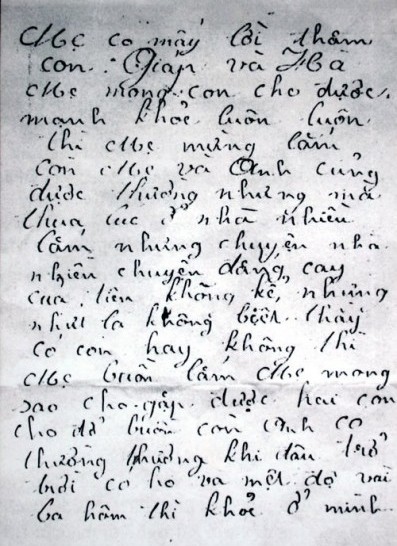 Mẹ co mấy lời thăm
con. Giáp và Hà
Mẹ mong con cho được.
mạnh khỏe luôn luôn
thì Mẹ mừng lắm
còn Mẹ và Anh cũng
được thường nhưng mà
thua cuc ở nhà nhiều
lắm nhưng chuyện nhà
nhiên chuyển đắng cay
của tiên không kể, nhưng
như la không biệt thầy
có con hay không thì
Mẹ buồn lắm Mẹ mong
sao cho gặp được hai con
cho đở buồn còn Anh co
thường thường khi đâu trở
trời co ho va một độ vài
ba hôm thì khỏe ở mình